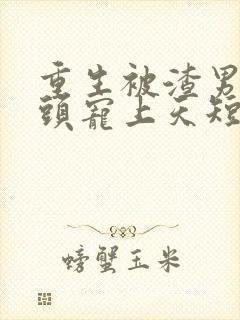 重生被渣男
頭寵上天短
螃蟹玉米